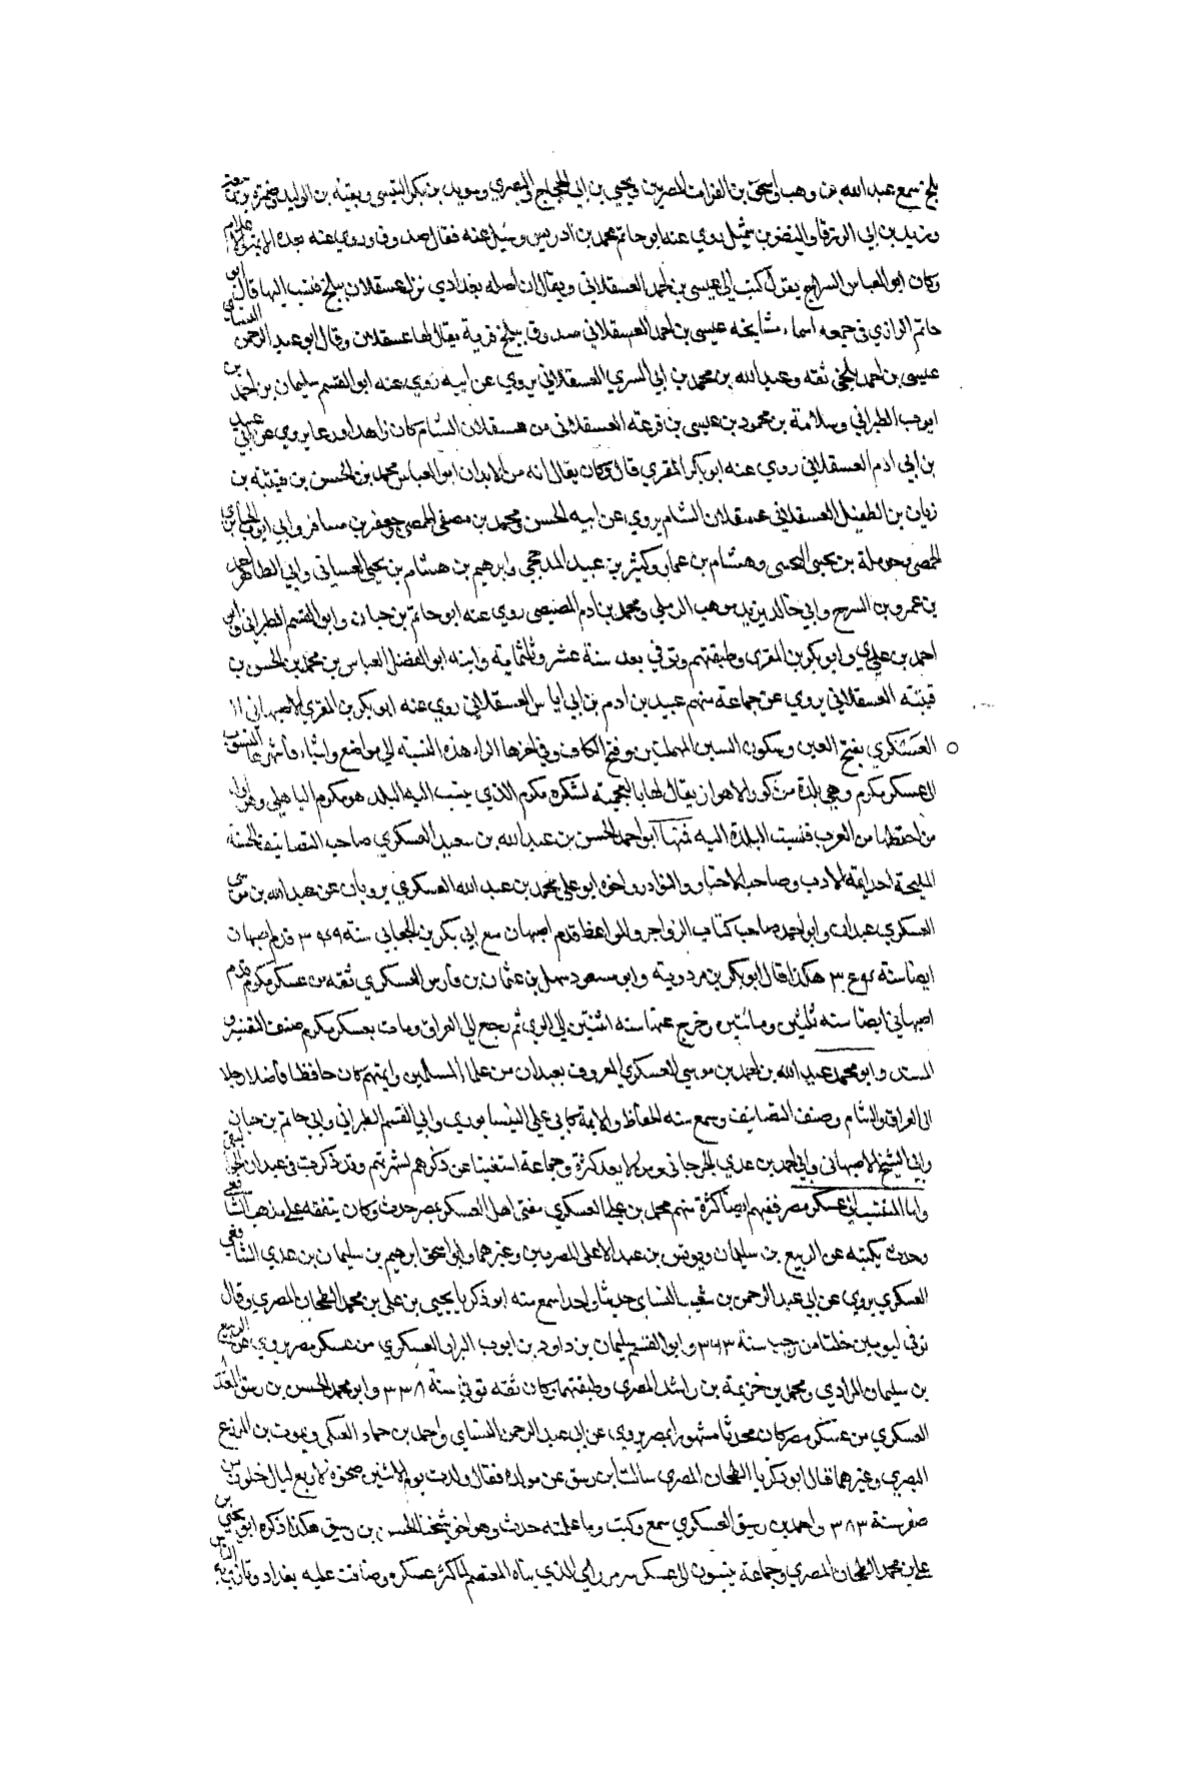 بلخ سمع عبد الله بن وهب واسحق بن الفرات المصريين ويحيى بن ابي الحجاج البصري وسويد بن بكر التيسي وبقية بن الوليد وضمرة بن ربيعة
وزيد بن ابي الزرقا والنضر بن شميل روي عنه ابو حاتم محمد بن ادريس وسيل عنه فقال صدوق وروي عنه بعده الايمة الاعلام
وكان ابو العباس السراج يقول كتب الي عيسى بن احمد العسقلاني ويقال ان اصله بغدادي نزل عسقلان بلخ فنسب اليها قال ابو
حاتم الرازي في جمعه اسماء مشايخه عيسى بن احمد العسقلاني صدوق ببلخ قرية يقال لها عسقلان وقال ابو عبد الرحمن النساي
عيسى بن احمد بلخي ثقه وعبد الله بن محمد بن ابي السري العسقلاني يروي عن ابيه روي عنه ابو القسم سليمان بن احمد بن
ايوب الطبراني وسلامة بن محمود بن عيسى بن قزعه العسقلاني من عسقلان الشام كان زاهدا ورعا يروي عن ابي عبيد
بن ابي ادم العسقلاني روي عنه ابو بكر المقري قال وكان يقال انه من الابدال ابو العباس محمد بن الحسن بن قتيبة بن
زبان بن الطفيل العسقلاني عسقلان الشام يروي عن ابيه الحسن ومحمد بن مصفى الحمصي وجعفر بن مسافر وابي ايوب الجبايري
الحمصي وحرملة بن يحيى التجيبي وهشام بن عمار وكثير بن عبيد المدحجي وابرهيم بن هشام بن يحيى الغساني وابي الطاهر احمد
بن عمرو بن السرح وابي خالد يزيد بن موهب الرملي ومحمد بن ادم المصيصي روي عنه ابو حاتم بن حبان وابو القسم الطبراني وابو
احمد بن عدي وابو بكر بن المقري وطبقتهم وتوفي بعد سنة عشر وثلثماية وابنه ابو الفضل العباس بن محمد بن الحسن بن
قتيبة العسقلاني يروي عن جماعة منهم عبيد بن ادم بن ابي اياس العسقلاني روي عنه ابو بكر بن المقري الاصبهاني
العَسْكَري بفتح العين وسكون السين المهملتين وفتح الكاف وفي اخرها الراء هذه النسبة الى مواضع واشياء فاشهرها المنسوب
الى عسكر مكرم وهي بلدة من كور الاهواز يقال لها بالعجمية لشكره مكرم الذي ينسب اليه البلد هو مكرم الباهلي وهو اول
من اختطها من العرب فنسبت البلدة اليه فمنها ابو احمد الحسن بن عبد الله بن سعيد العسكري صاحب التصانيف الحسنة
المليحة احد ايمة الادب وصاحب الاخبار والنوادر واخوه ابو علي محمد بن عبد الله العسكري يرويان عن عبد الله بن موسى
العسكري عبدان وابو احمد صاحب كتاب الزواجر والمواعظ قدم اصبهان مع ابي بكر بن الجعابي سنة ٣٤٩ قدم اصبهان
ايضا سنة ٣٥٤ هكذا قال ابو بكر بن مردوية وابو مسعود سهل بن عثمان بن فارس العسكري ثقه من عسكر مكرم قدم
اصبهان ايضا سنه ثلثين ومائتين وخرج عنها سنه اثنتين الى الري ثم رجع الى العراق ومات بعسكر مكرم صنف التفسير و
المسند وابو محمد عبد الله بن احمد بن موسى العسكري المعروف بعبدان من علماء المسلمين وايمتهم كان حافظا فاضلا رحل
الى العراق والشام وصنف التصانيف وسمع منه الحفاظ والايمة كابي علي النيسابوري وابي القسم الطبراني وابي حاتم بن حبان
وابي الشيخ الاصبهاني وابي احمد بن عدي الجرجاني ومن لا يعد كثرة وجماعة استغنينا عن ذكرهم لشهرتهم وقد ذكرت في عبدان الجواليقي
واما المنتسب الى عسكر مصر ففيهم ايضا كثرة منهم محمد بن علي العسكري مفتي اهل العسكر بمصر حدث وكان يتفقه على مذهب الشافعي
وحدث بكتبه عن الربيع بن سليمان ويونس بن عبد الاعلى المصريين وغيرهما وابو اسحق ابرهيم بن سليمان بن عدي الشافعي
العسكري يروي عن ابي عبد الرحمن بن شعيب النساي حديثا واحدا سمع منه ابو زكريا يحيى بن علي بن محمد الطحان المصري وقال
توفي ليومين خلتا من رجب سنة ٣٦٣ وابو القسم سليمان بن داود بن ايوب البزاز العسكري من عسكر مصر يروي عن الربيع
بن سليمان المرادي ومحمد بن خزيمة بن راشد المصري وطبقتهما وكان ثقه توفي سنة ٣٣٨ وابو محمد الحسن بن رشيق المعدل
العسكري من عسكر مصر كان محدثا مشهورا بمصر يروي عن ابي عبد الرحمن النساي واحمد بن حماد العكي ويموت بن المزرع
البصري وغيرهما قال ابو زكريا الطحان المصري سالت ابن رشيق عن مولده فقال ولدت يوم الاثنين ضحوة لاربع ليال خلون من
صفر سنة ٣٨٣ واحمد بن رشيق العسكري سمع وكتب وما علمته حدث وهو اخو شيخنا الحسن بن رشيق هكذا ذكره ابو يحيى بن
علي بن محمد الطحان المصري وجماعة ينسبون الى عسكر سر من راي الذي بناه المعتصم لما كثر عسكره وضاقت عليه بغداد وتاذي به الناس